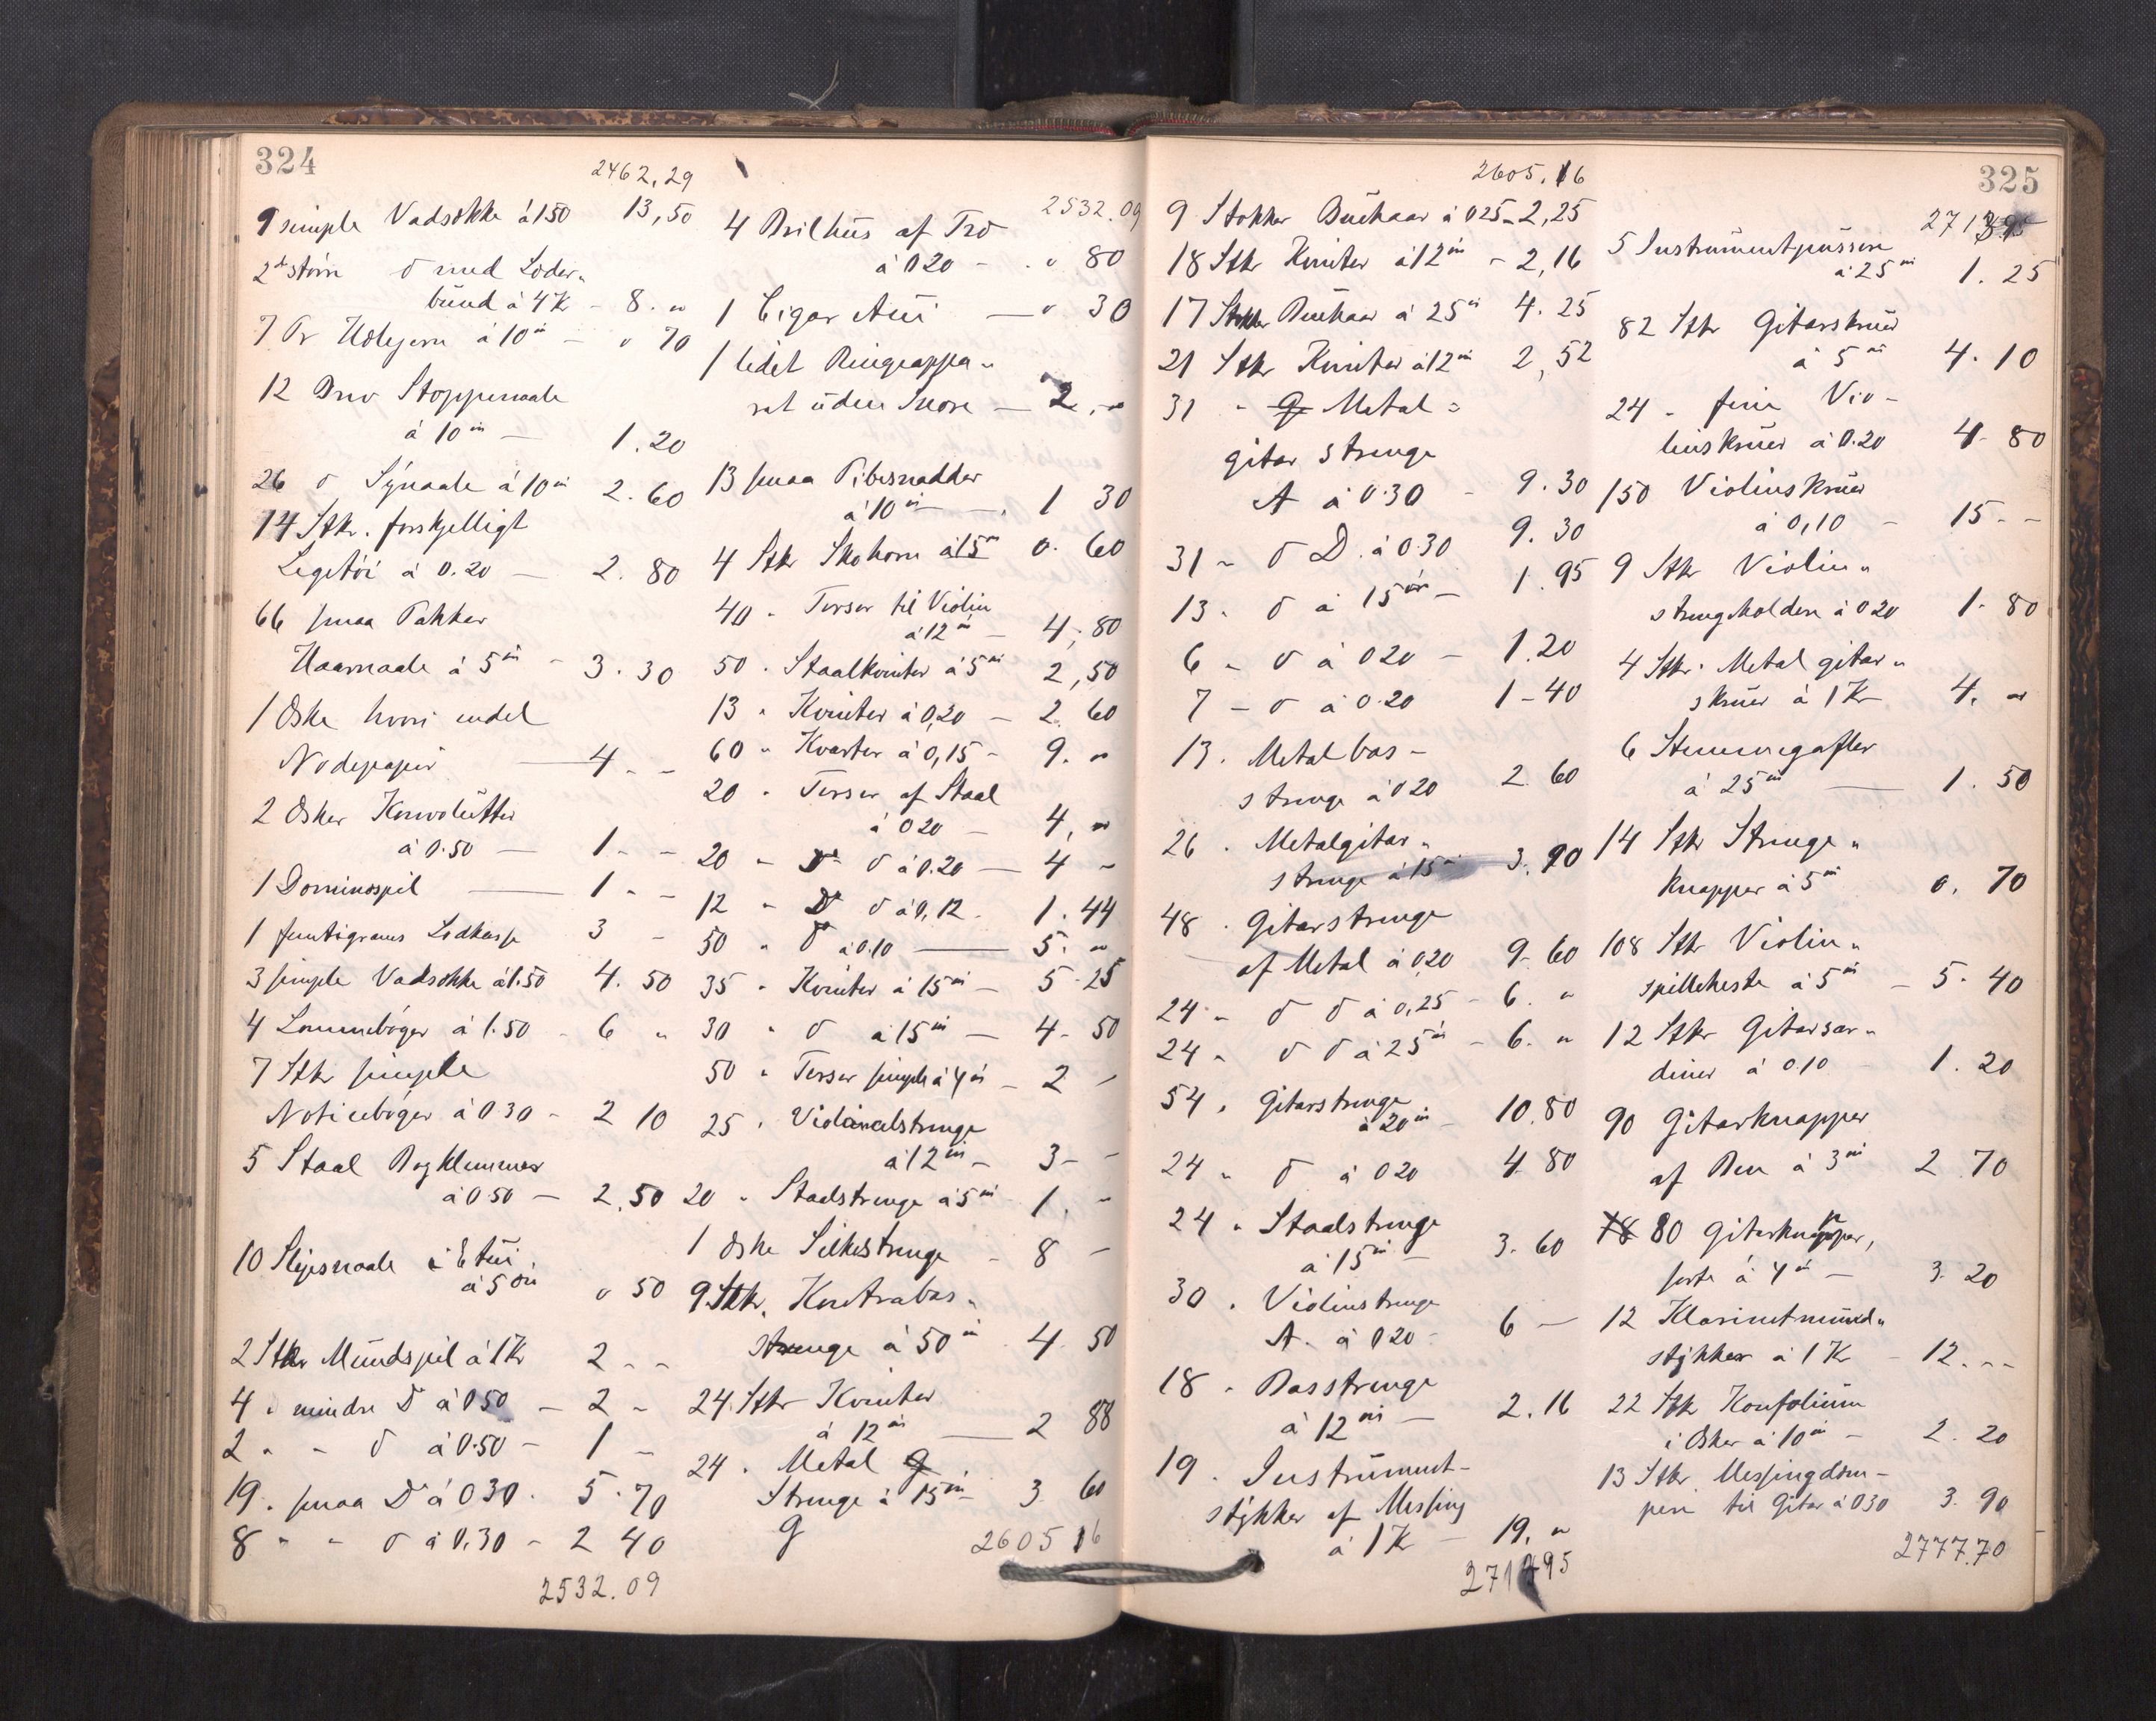 324
2462,29
9 simple Vadsække á 1.50 13,50
2 større d med Læder-
bund á 4 K - 8. "
7 Pr á 10 øre - " 70
12 Brev Stoppenaale
á 10 øre - 1.20
26 d Synaale á 10 øre 2.60
14 Stkr. forskjelligt
Legetøi á 0.20 - 2.80
66 smaa Pakker
Haarnaale á 5 øre - 3.30
1 Øske hvori endel
Nodepapir - 4 - -
2 Øsker Konvolutter
á 0.50 - 1 - -
1 Dominospil - 1 - -
1 femtigrams Lodkasse 3 -
3 simple Vadsække á 1.50 4.50
4 Lommebøger á 1.50 - 6 "
7 Stkr simple
Noticebøger á 0.30 - 2 10
5 Staal Bogklemmer
á 0.50 - 2.50
10 Slipsnaale i Etui
á 5 øre " 50
2 Stkr Mundspil á 1 Kr 2 - -
4 " mindre D á 0.50 - 2 -
2 " " d á 0.50 - 1 -
19 . smaa D á 0.30 . 5.70
8 " - d á 0.30 - 2 40
2532.09
2532.09
4 Brilhus af Træ
á 0.20 - . " 80
1 Cigar Etui - " 30
1 lidet Ringeappa-
rat uden Snore - 2, -
13 smaa Pibesnadder
á 10 øre - 1 30
4 Stkr Skohorn á 15 øre 0. 60
40 . Terser til Violin
á 12 øre - 4,80
50 . Staalkvinter á 5 øre 2,50
13 " Kvinter á 0,20 - 2.60
60 " Kvarter á 0,15 - 9. "
20 " Terser af Staal
á 0.20 - 4, "
20 " d á 0.20 - 4 -
12 " D d á 0,12 - 1.44
50 " d á 0.10 - 5. "
35 " Kvinter á 15 øre - 5.25
30 " d á 15 øre - 4.50
50 " Terser simple á 4 øre - 2 -
25 . Violincelstrenge
á 12 øre - 3 - -
20 " Staalstrenge á 5 øre 1. -
1 Øske Silkestrenge - 8 -
9 Stkr. Kontrabas-
strenge á 50 øre 4 50
24 Stkr Kvinter
á 12 øre - 2 88
24 . Metal G
Strenge á 15 øre 3 60
G
2605 16
325
2605.16
9 Stokker Buehaar á 0.25 - 2,25
18 Stkr Kvinter á 12 øre - 2,16
17 Stokker Buehaar á 25 øre 4.25
21 Stkr Kvinter á 12 øre 2,52
31 " G Metal =
gitar strenge
A á 0.30 - 9.30
31 " d D. á 0.30 9.30
13 " d á 15 øre - 1.95
6 " d á 0.20 - 1.20
7 - d á 0.20 1-40
13. Metalbas-
strenge á 0.20 2.60
26 . Metalgitar-
strenge á 15 øre 3.90
48 . Gitarstrenge
af Metal á 0.20 9-60
24 " d d á 0,25 - 6. "
24 " d d á 25 øre - 6. "
54 . Gitarstrenge
á 20 øre - 10.80
24 " d á 0.20 4.80
24 " Staalstrenge
á 15 øre - 3.60
30 . Violinstrenge
A. á 0.20 - 6 -
18 . Basstrenge
á 12 øre - 2.16
19 . Instrument-
stykker af Messing
á 1 K - 19. "
95
271
5 Instrumentpussere
á 25 øre 1.25
82 Stkr Gitarskruer
á 5 øre 4.10
24 - fine Vio-
linskruer á 0.20 4-80
150 Violinskruer
á 0,10 - 15 - -
9 Stkr Violin-
strengholdere á 0.20 1.80
4 Stkr. Metal gitar-
skruer á 1 Kr 4. "
6 Stemmegafler
á 25 øre - 1.50
14 Stkr Strenge-
knapper á 5 øre 0.70
108 Stkr Violin-
spilleheste á 5 øre - 5.40
12 Stkr Gitarsor-
diner á 0.10 1.20
90 Gitarknapper
af Ben á 3 øre 2 70
78 80 Gitarknapper,
sorte á 4 øre - 3.20
12 Klarinetmund-
stykker á 1 K - 12. - -
22 Stkr
i Øsker á 10 øre - 2.20
13 Stkr Messingdæm-
pere til Gitar á 0.30 3.90
2777.70